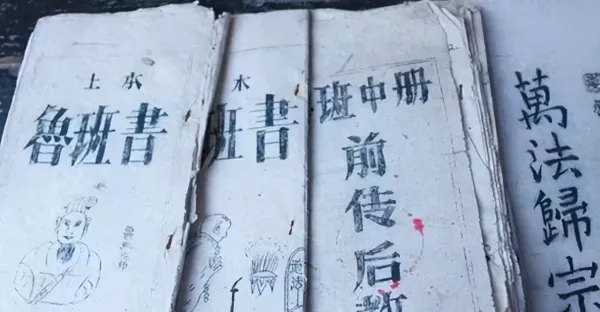 土木
魯班書
木
班書
道法
班中册
前传后教
萬法歸宗